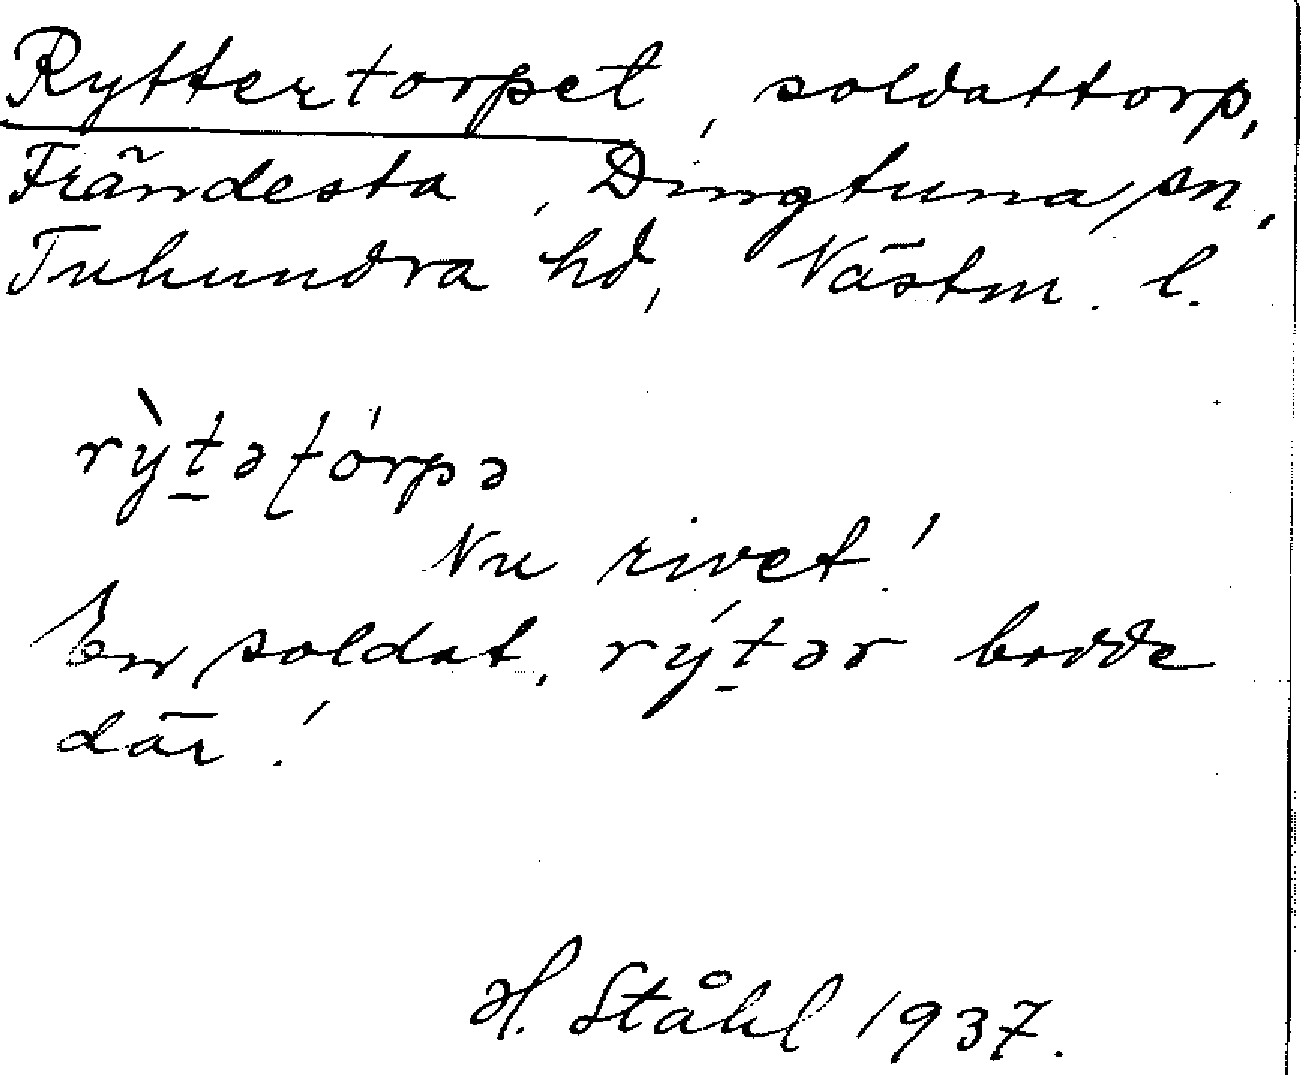 Ryttertorpet, soldattorp,
Frändesta, Dingtuna sn,
Tuhundra hd, Västm. l.
rỳt̲əʈórpə
Nu rivet!
En soldat, rýt̲ər bodde
där!
H. Ståhl 1937.